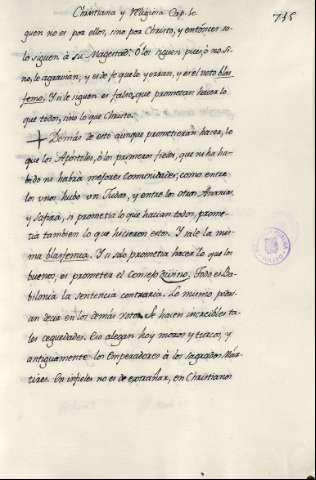 Christiana y Religiosa Cap. 1.
735
guen no es por ellos, sino por Christo, y entonces so-
lo siguen à su Magestad. O les siguen pues, ò no. Si
no, le agravian, y es de fe que lo yerran, y es el voto blas
femo. Y si le siguen es falso, que prometan hacer lo
que todos, sino lo que Christo.
Demàs de esto aunque prometieràn hacer, lo
que los Apòstoles, ò los primeros fieles, que ni ha ha-
bido ni habrà mejores Comunidades; como entre
los unos hubo un Judas, y entre los otros Ananias,
y Sefira, si prometia lo que hacian todos, prome-
tia tambien lo que hicieron estos. Y sale la mis-
ma blasfemia. Y si solo prometia hacer lo que los
buenos, es prometer el Consejo divino. Todo es Ba-
bilonia la sentencia contraria. Lo mismo pudie-
ran decir en los demàs votos. Se hacen increibles ta-
les ceguedades. Eso alegan hoy moros y turcos, y
antiguamente los Emperadores à los sagrados Màr-
tires. En infieles no es de extrañar, en Christianos